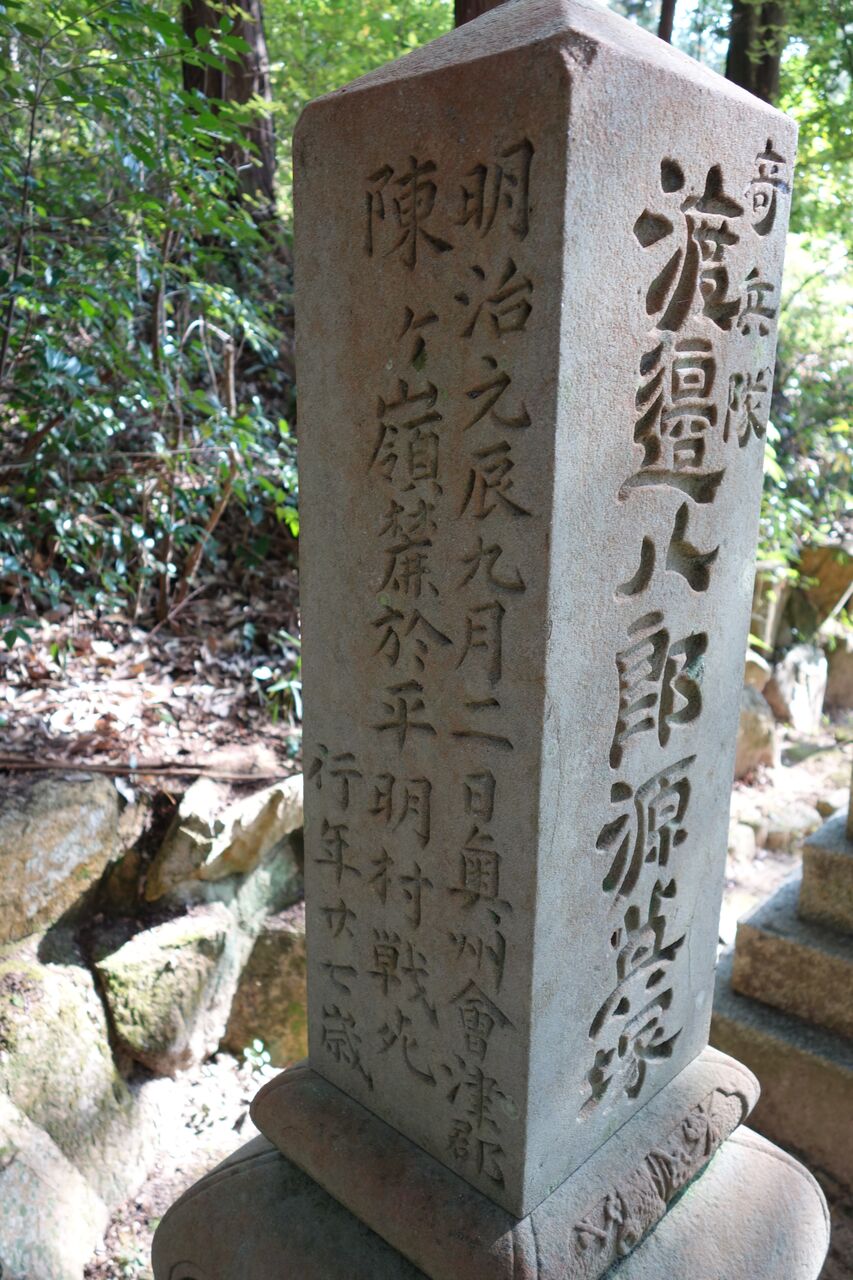 奇兵隊
渡邉八郎源塚
明治元辰九月二日奥州會津郡
陳ヶ嶺麓於平明村戦死
行年廿七歳